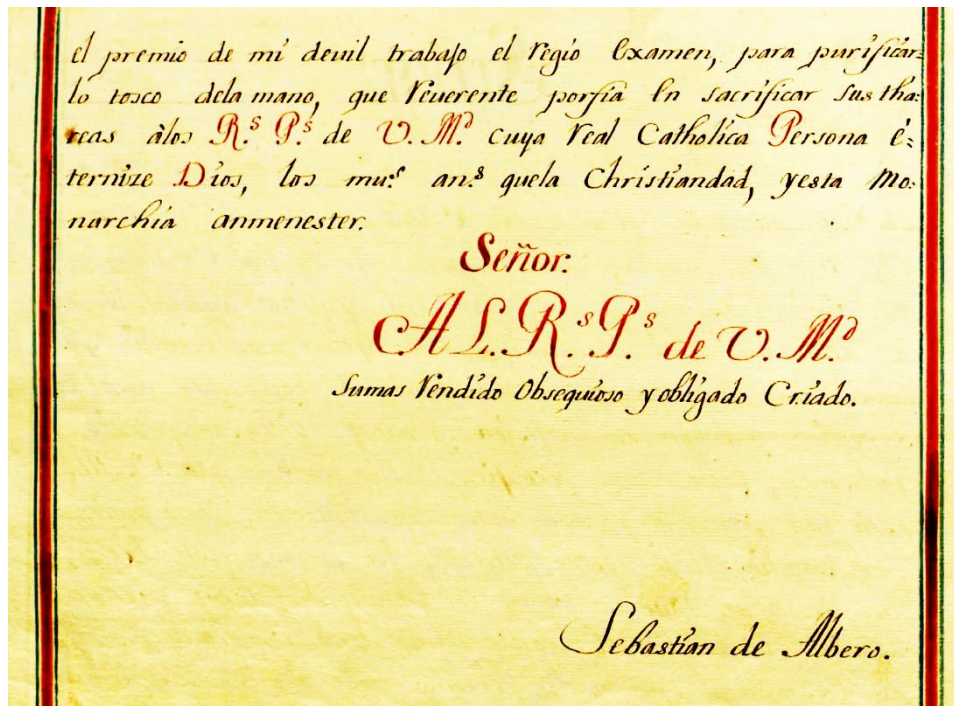 el premio de mi devil trabajo el regio Examen, para purificar=
lo tosco dela mano, que reverente porfia en sacrificar sus tha:
reas âlos R.s P.s de V. M.d cuya real Catholica Persona é:
ternize Dios, los mu.s an.s quela Christiandad, yesta Mo:
narchia anmenester.
Señor.
A L. R.s P.s de V. M.d
Sumas rendido Obsequioso y obligado Criado.
Sebastian de Albero.